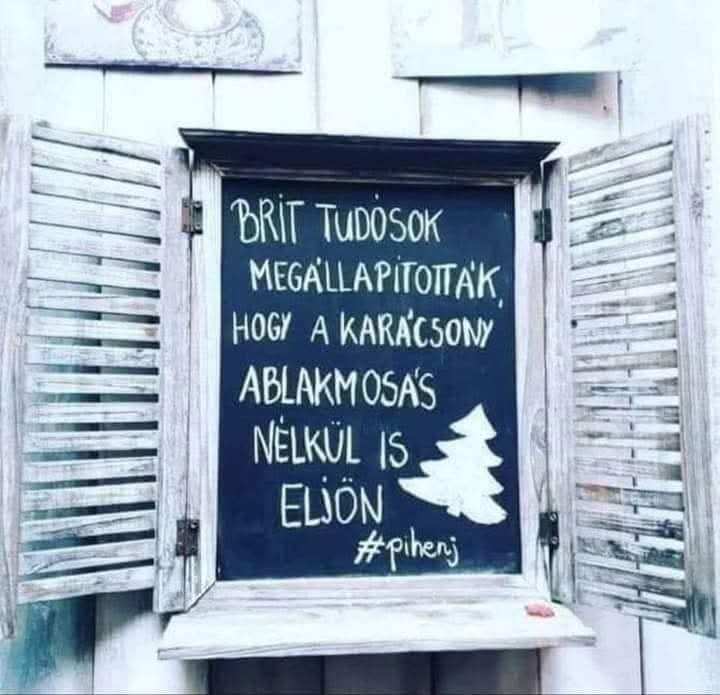 BRIT TUDÓSOK
MEGÁLLAPÍTOTTÁK,
HOGY A KARÁCSONY
ABLAKMOSÁS
NÉLKÜL IS
ELJÖN
#pihenj